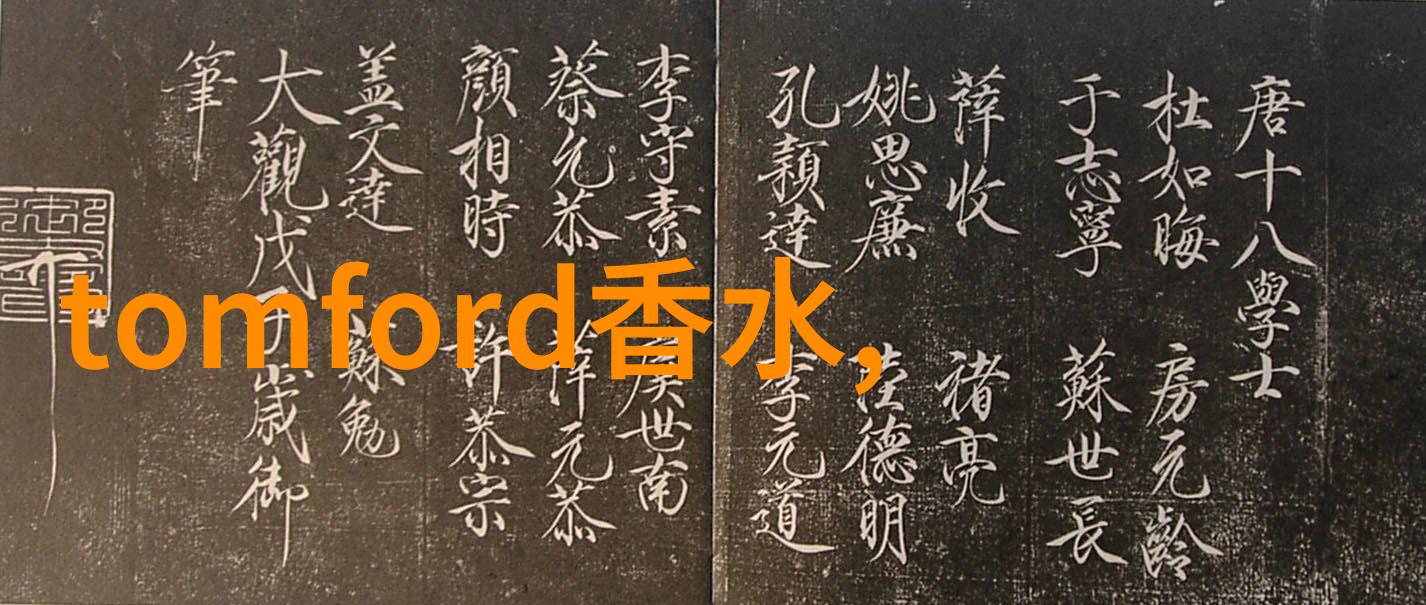 唐十八學士
杜如晦 房元齡
于志寧 蘇世長
薛收 褚亮
姚思廉 陸德明
孔穎達 李元道
李守素 虞世南
蔡允恭 薛元恭
顏相時 許恭宗
盖文達 蘇勉
大觀戊子歲御
筆
tomford香水,